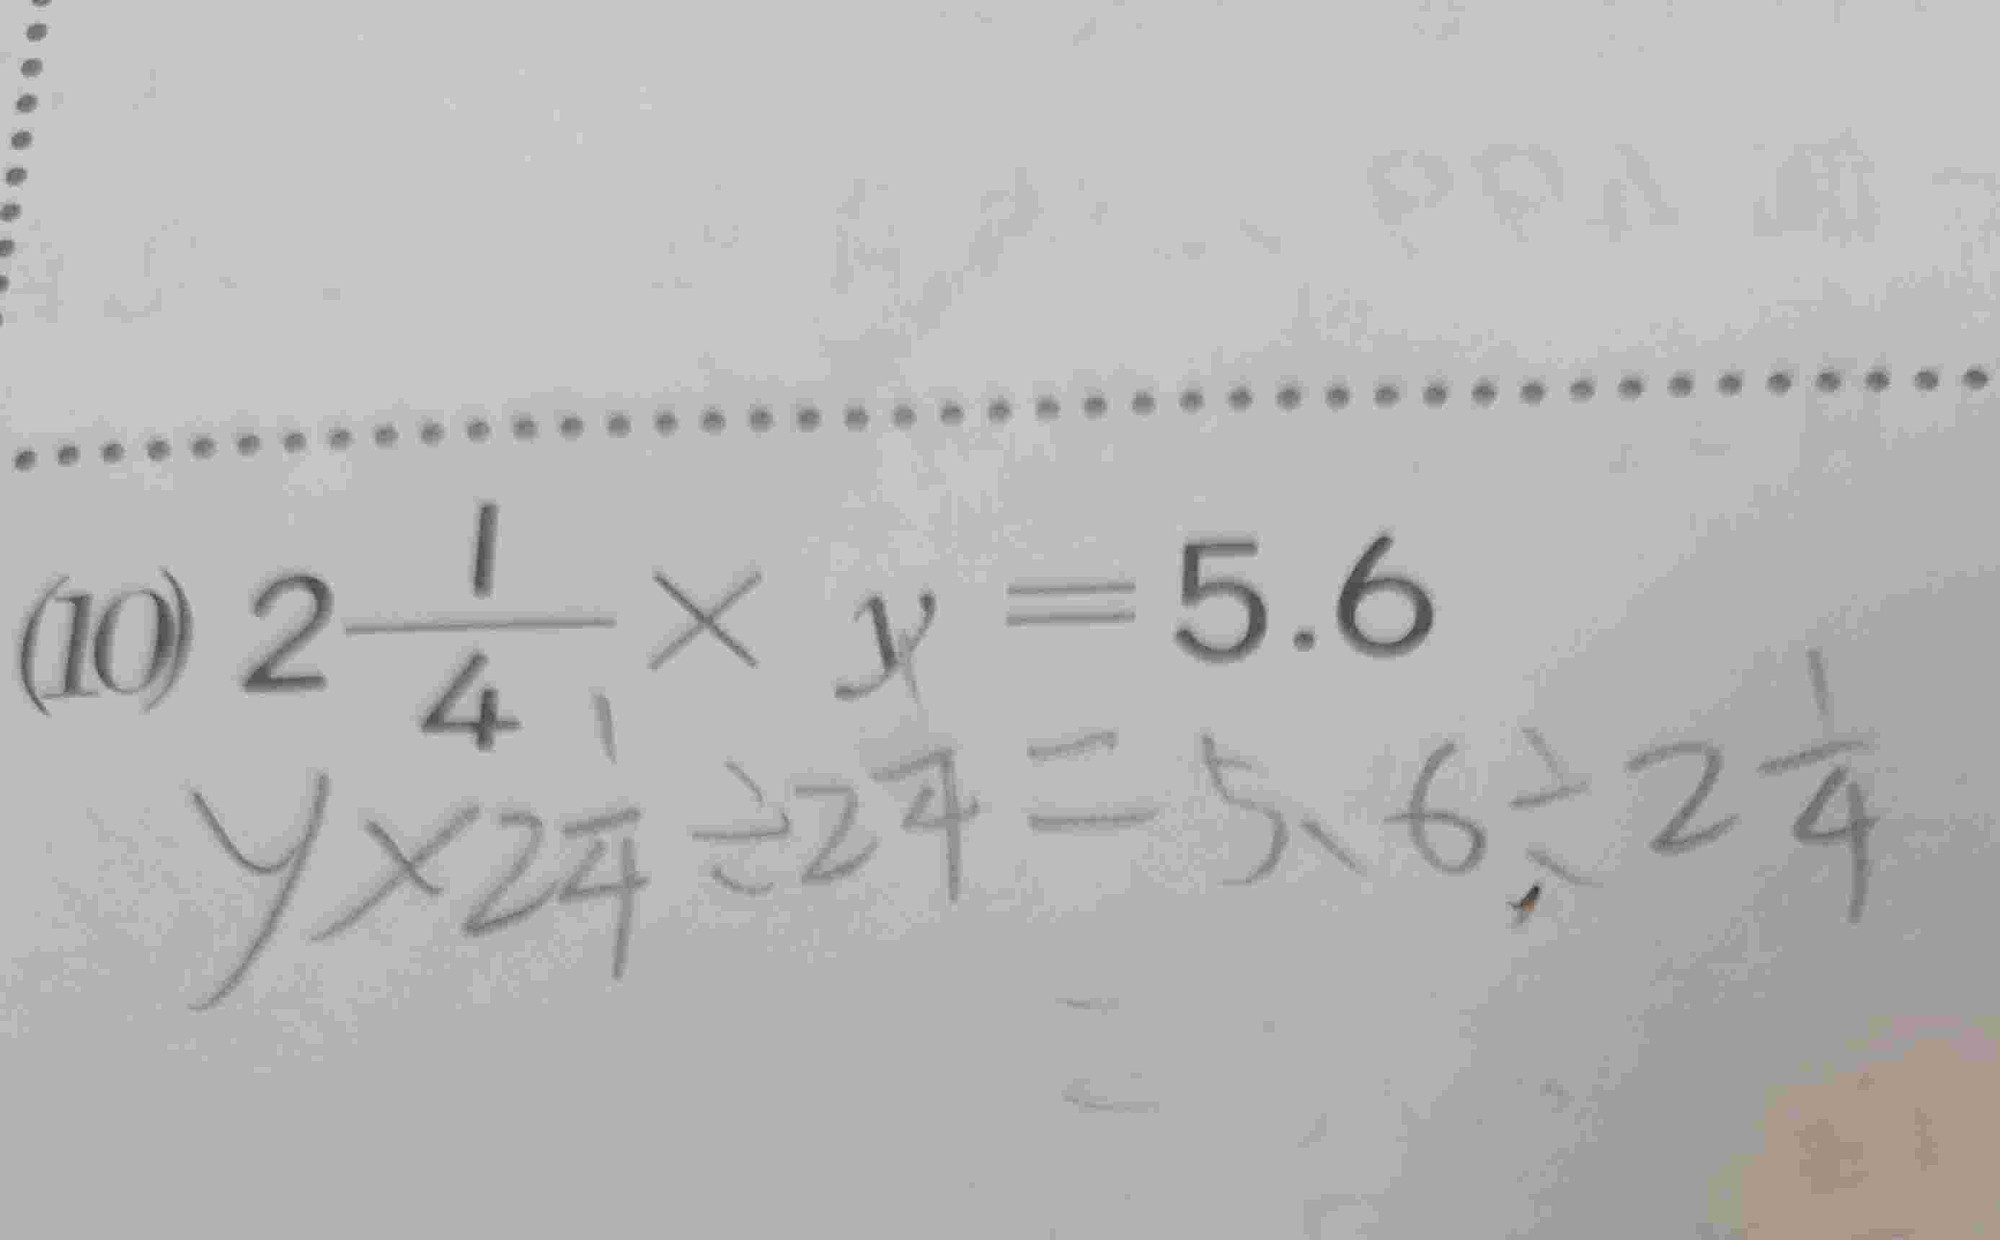 (10) 2 1/4 × y = 5.6
y × 2 1/4 ÷ 2 1/4 = 5.6 ÷ 2 1/4
=